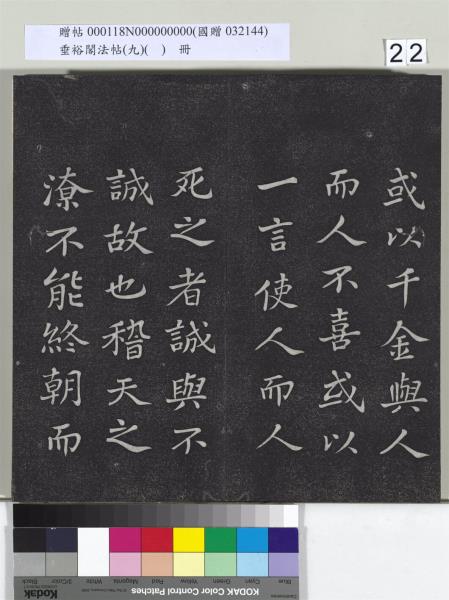 贈帖 000118N000000000(國贈 032144)
垂裕閣法帖(九)( ) 冊
22
或以千金與人
而人不喜或以
一言使人而人
死之者誠與不
誠故也稽天之
潦不能終朝而
Blue Cyan Green Yellow Red Magenta White 3/Color Black
KODAK Color Control Patches
Kodak